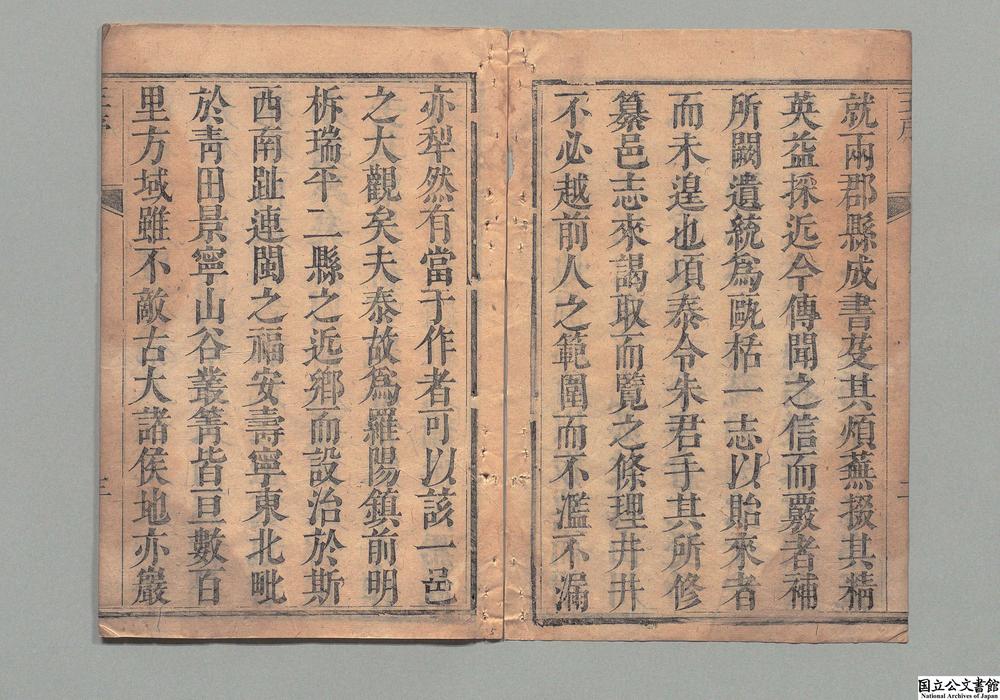 就兩郡縣成書芟其煩蕪掇其精
英益採近今傳聞之信而覈者補
所闕遺統爲甌栝一志以貽來者
而未遑也項泰令朱君手其所修
纂邑志來謁取而覽之條理井井
不必越前人之範圍而不濫不漏
亦犁然有當于作者可以該一邑
之大觀矣夫泰故爲羅陽鎮前明
柝瑞平二縣之近鄉而設治於斯
西南趾連閩之福安壽寧東北毗
於靑田景寧山谷叢箐皆亘數百
里方域雖不敵古大諸侯地亦巖
国立公文書館
National Archives of Japan